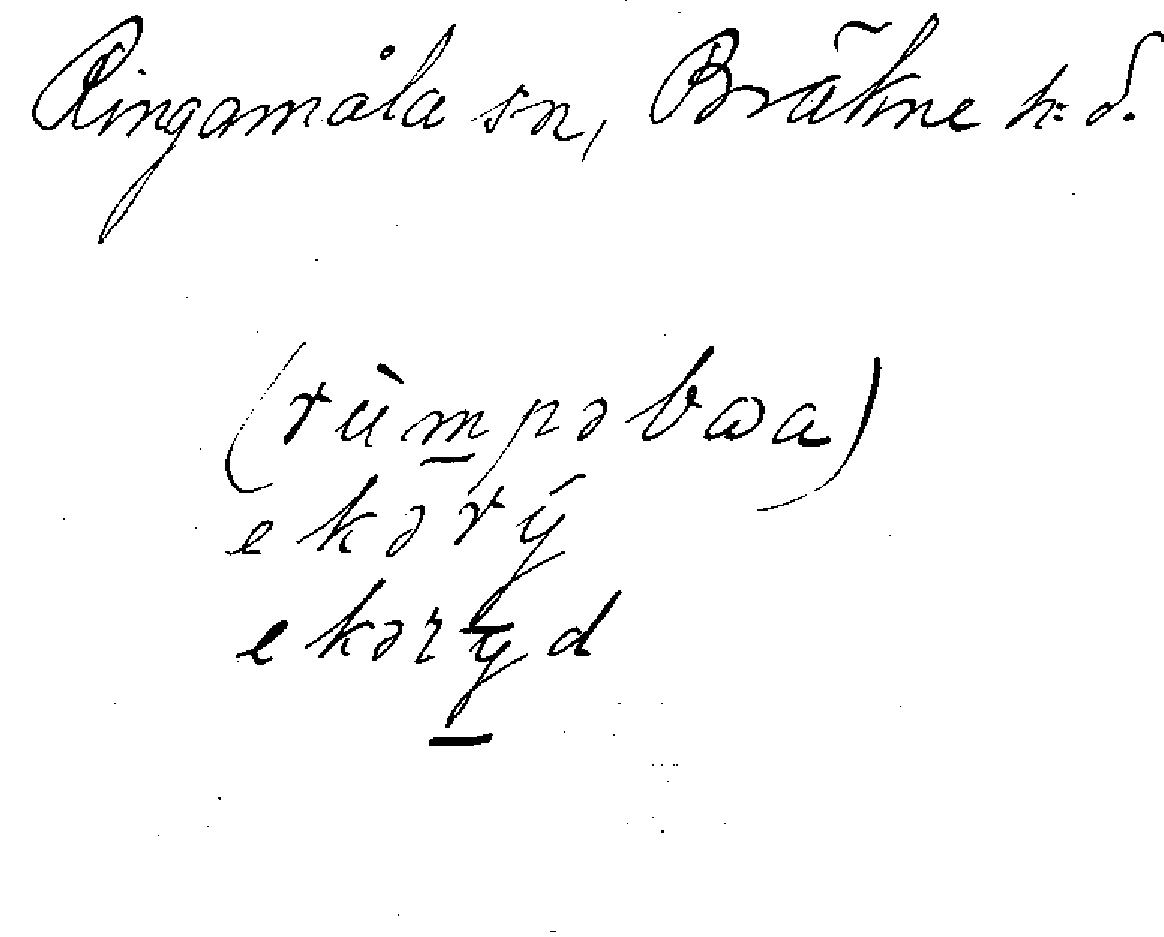 Ringamåla sn, Bräkne h:d.
(rùm̲pəbωa)
ekərý
ekəry̲d